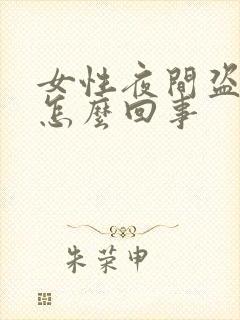 女性夜間盗
怎麼回事
朱荣申